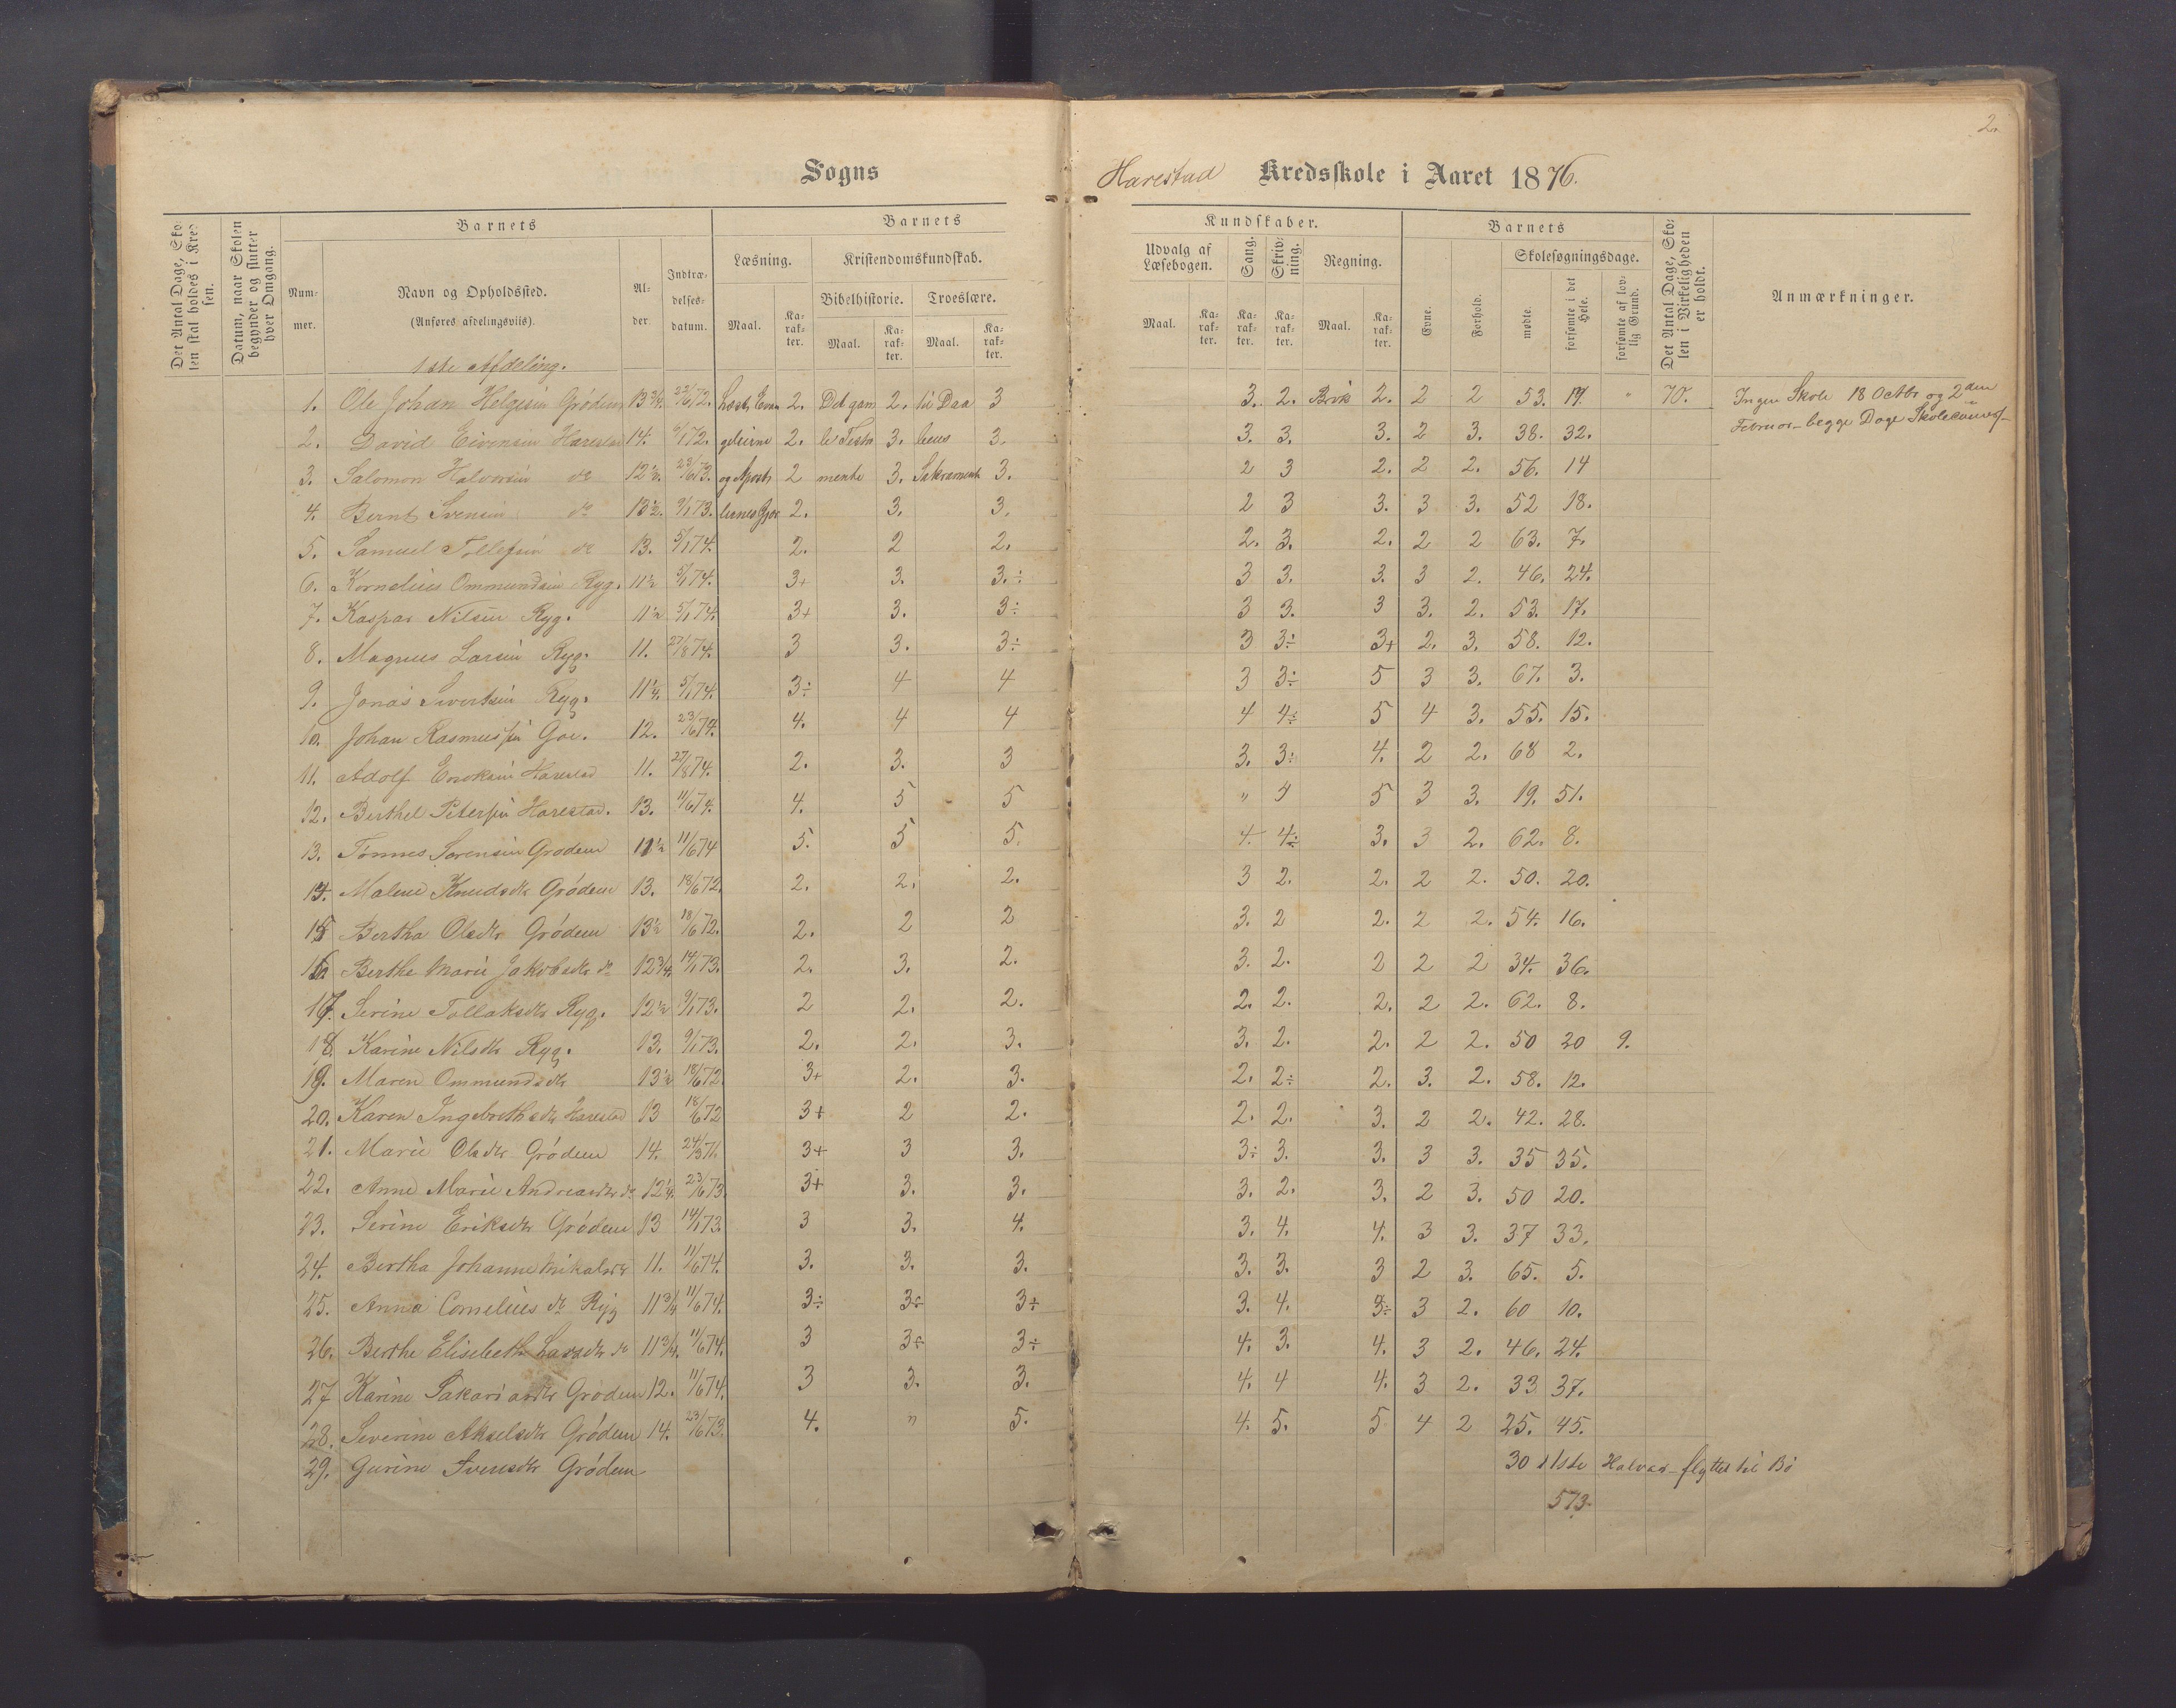 2.
Sogns
Harestad Kredsskole i Aaret 1876.
Det Antal Dage, Skolen skal holdes i Kredsen.
Datum, naar Skolen begynder og slutter hver Omgang.
Barnets
Nummer.
Navn og Opholdssted.
(Anføres afdelingsviis).
Alder.
Indtrædelsesdatum.
Barnets
Læsning.
Kristendomskundskab.
Bibelhistorie. Troeslære.
Maal. Karakter. Maal. Karakter. Maal. Karakter.
Kundskaber.
Udvalg af Læsebogen. Sang. Skrivning. Regning.
Maal. Karakter. Karakter. Karakter. Maal. Karakter.
Barnets
Evne. Forhold.
Skolesøgningsdage.
mødte. forsømte i det Hele. forsømte af lovlig Grund.
Det Antal Dage, Skolen i Virkeligheden er holdt.
Anmærkninger.
1ste Afdeling.
1. Ole Johan Helgesen Grödem 13 3/4. 25/6 72. 2. Det gam 2. til Daa 3 3. 2. Brök 2. 2 2 53. 17. " 70. Ingen Skole 18 Octbr og 2den
2. David Eivensen Harestad 14. 9/1 72. gelierne 2. le Testa 3. bens 3. 3. 3. 3. 2 3. 38. 32. Februar begge Dage
3. Salomon Halvorsen do 12 1/2. 23/6 73. og Apost 2 mente 3. Sakramente 3. 2 3 2. 2 2. 56. 14
4. Bernt Svensen do 13 1/2. 9/1 73. lernes Gjer 2. 3. 3. 2 3 3. 3 3. 52 18.
5. Samuel Tollefsen do 13. 5/1 74. 2. 2 2. 2. 3. 2. 2 2 63. 7.
6. Kornelius Ommundsen Ryg. 11 1/2 5/1 74. 3+ 3. 3.÷ 3 3. 3. 3 2. 46. 24.
7. Kaspar Nilsen Ryg. 11 1/2 5/1 74. 3+ 3. 3÷ 3 3. 3 3. 2. 53. 17.
8. Magnus Larsen Ryg. 11. 27/8 74. 3 3. 3÷ 3 3÷ 3+ 2. 3. 58. 12.
9. Jonas Sivertsen Ryg. 11 1/4. 5/1 74. 3÷ 4 4 3 3÷ 5 3 3. 67. 3.
10. Johan Rasmussen Goe. 12. 23/6 74. 4. 4 4 4 4÷ 5 4 3. 55. 15.
11. Adolf Enoksen Harestad 11. 27/8 74. 2. 3. 3 3. 3÷ 4. 2 2. 68 2.
12. Berthel Petersen Harestad. 13. 11/6 74. 4. 5 5 " 4 5 3 3. 19. 51.
13. Tønnes Sørensen Grødem 11 1/2 11/6 74 5. 5 5. 4. 4÷ 3. 3 2. 62. 8.
14. Malene Knudsdtr Grödem 13. 18/6 72. 2. 2. 2. 3 2. 2. 2 2. 50. 20.
15 Bertha Olsdtr Grödem 13 1/2 18/6 72. 2. 2 2 3. 2 2. 2 2. 54. 16.
16. Berthe Marie Jakobsdtr do 12 3/4. 14/1 73. 2. 3. 2. 3. 2. 2 2 2 34. 36.
17. Serine Tollaksdtr Ryg. 12 1/2 9/1 73. 2 2. 2. 2. 2. 2. 2 2. 62. 8.
18. Karine Nilsdtr Ryg. 13. 9/1 73. 2. 2. 3. 3. 2. 2. 2 2. 50 20 9.
19. Maren Ommundsdtr 13 1/2 18/6 72 3+ 2. 3. 2. 2÷ 2. 3. 2. 58. 12.
20. Karen Ingebrethsdtr Harestad 13 18/6 72 3+ 2 2. 2. 2. 3. 2 2. 42. 28.
21. Marie Olsdtr Grödem 14. 24/3 71. 3+ 3 3. 3÷ 3. 3. 3 3. 35 35.
22. Anne Marie Andreasdtr do 12 1/4. 23/6 73. 3+ 3. 3. 3. 2. 3. 2 3. 50 20.
23. Serine Eriksdtr Grödem 13 14/1 73. 3 3. 4. 3. 4. 4. 3 3. 37 33.
24. Bertha Johanne Mikalsdtr 11. 11/6 74. 3. 3. 3. 3. 3. 3 2 3. 65. 5.
25. Anna Cornelius dtr Ryg 11 3/4 11/6 74. 3÷ 3÷ 3÷ 3. 4. 3÷ 3 2. 60 10.
26. Berthe Elisebeth Larsdtr do 11 3/4. 11/6 74. 3 3÷ 3÷ 4. 3. 4. 3 2. 46. 24.
27 Karine Sakariasdtr Grödem 12. 11/6 74. 3 3. 3. 4. 4 4. 3 2. 33 37.
28. Severine Akselsdtr Grödem 14. 23/6 73. 4. " 5. 4. 5. 5 4 2 25. 45.
29. Gurine Svensdtr Grödem 30 i 1ste Halvaar flyttet til Bö
573.